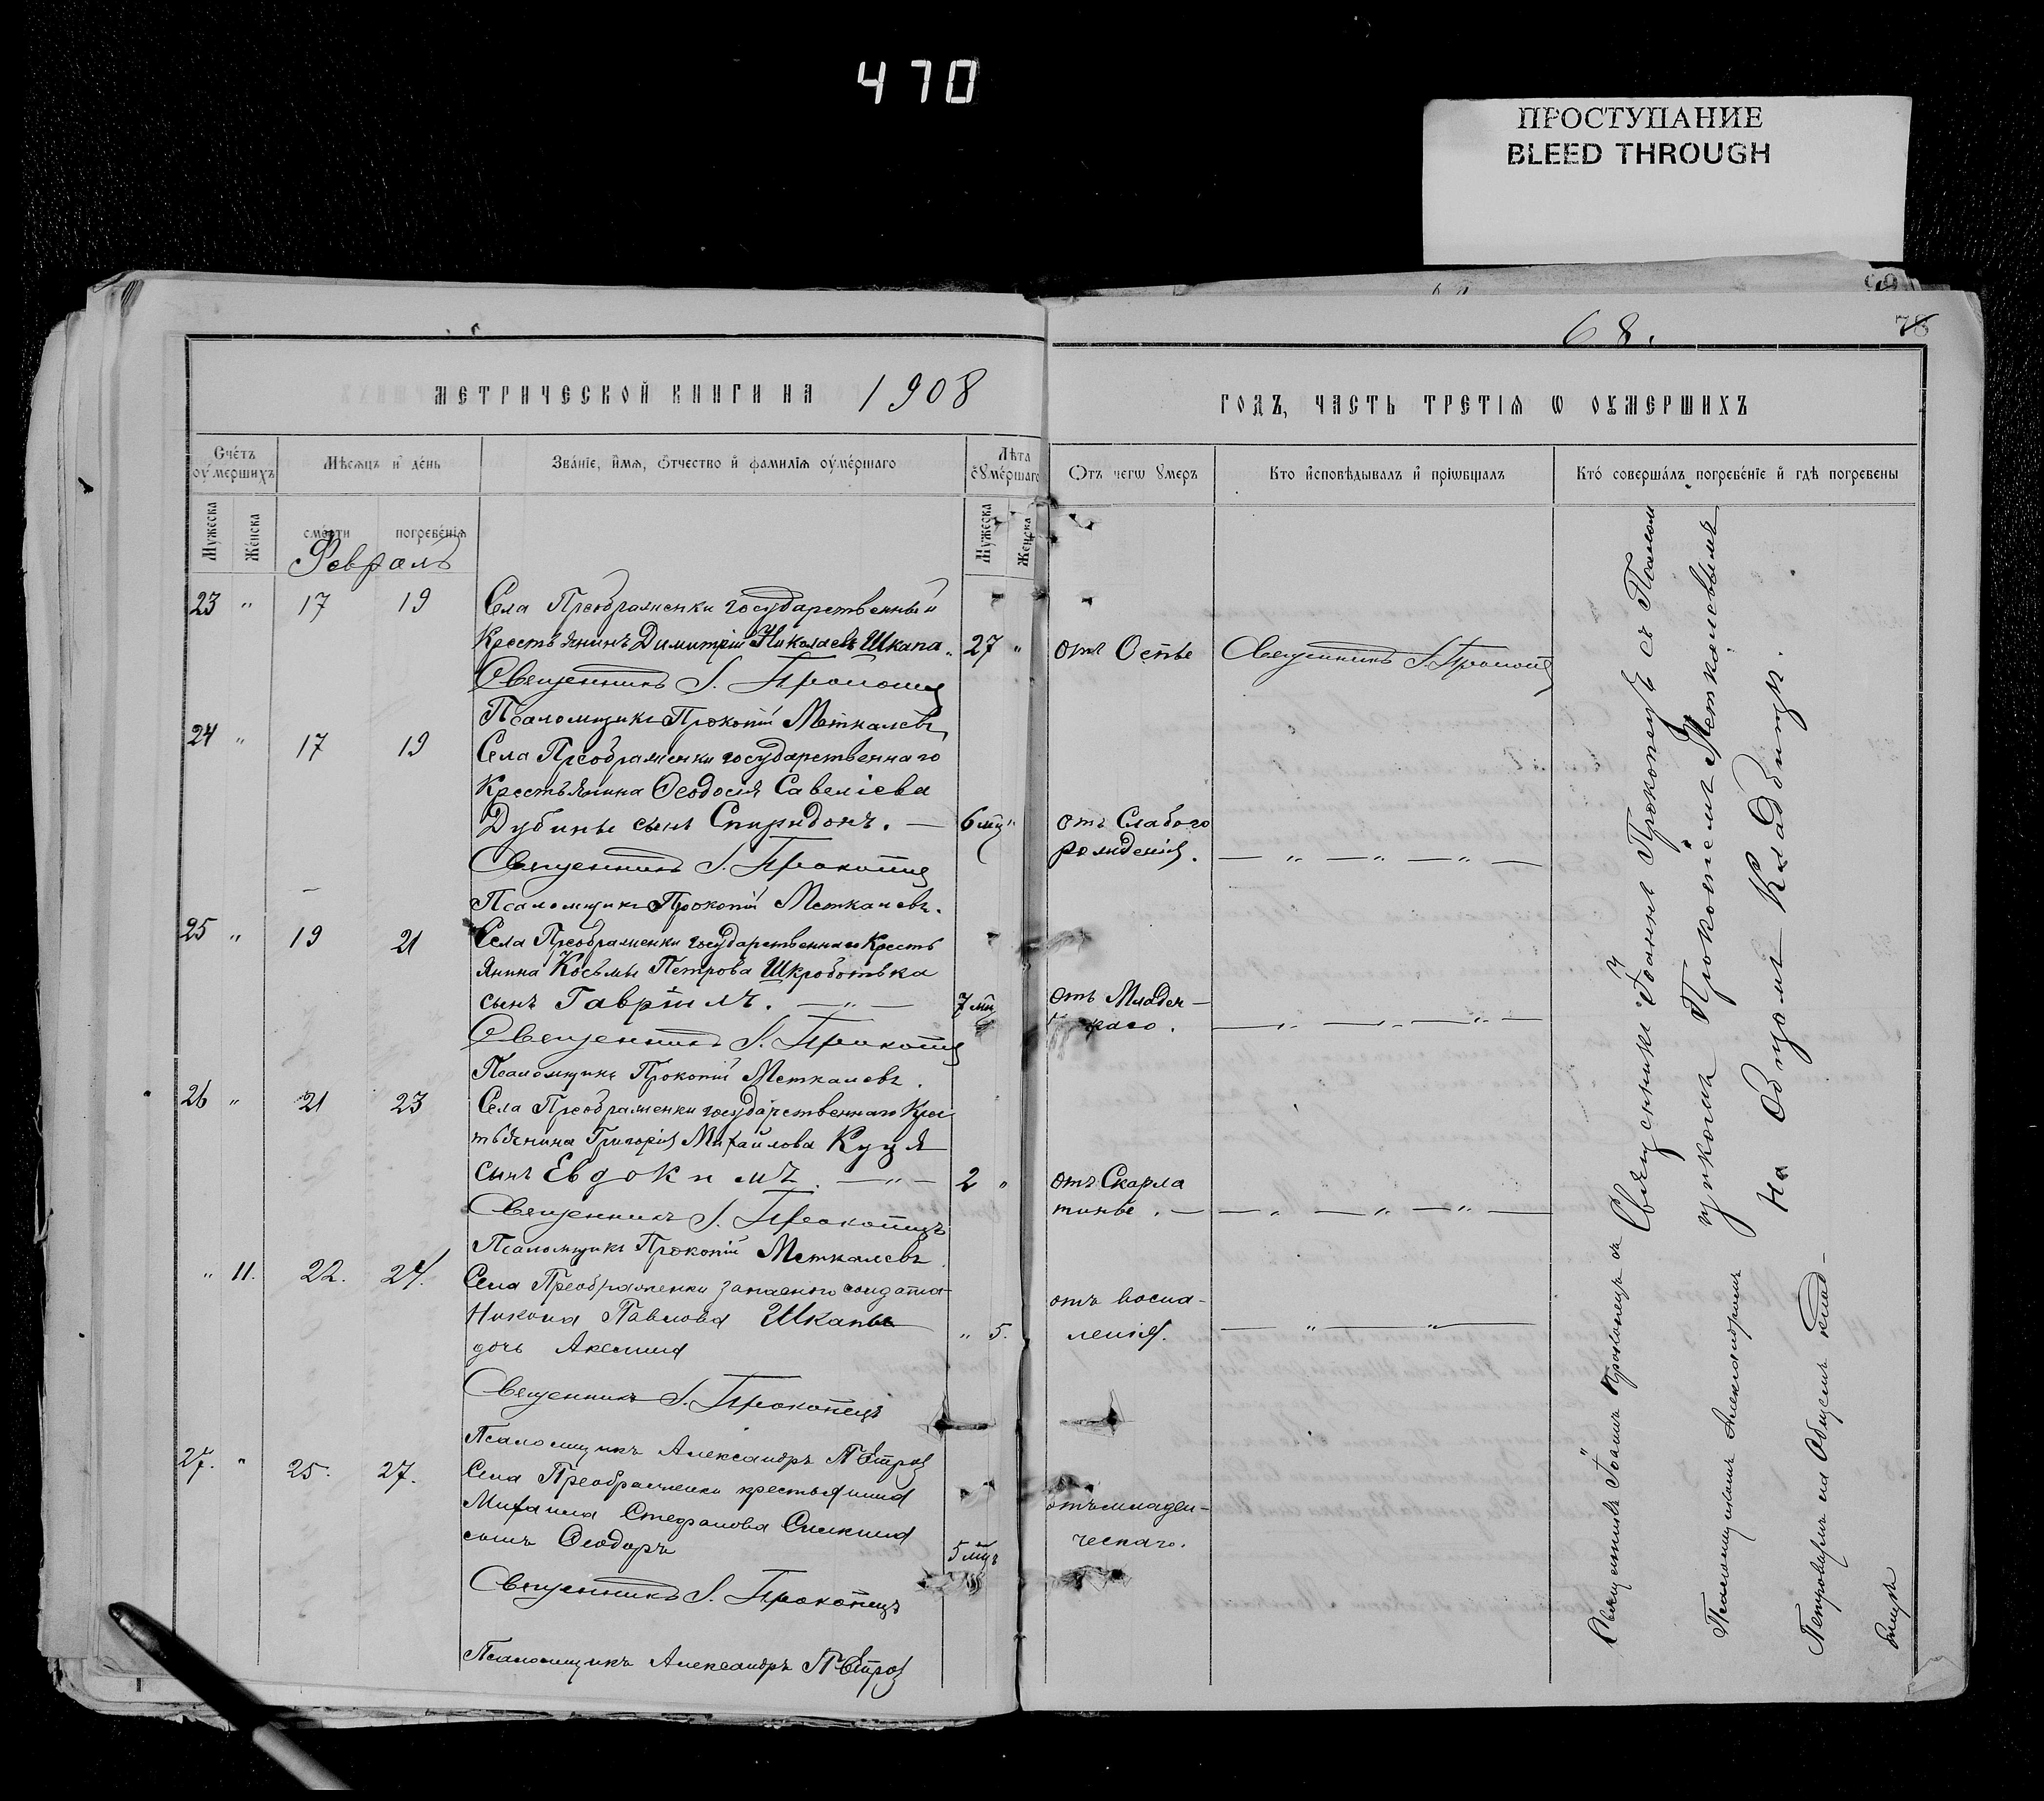 470
ПРОСТУПАНИЕ
BLEED THROUGH
68.
78
МЕТРИЧЕСКОЙ КНИГИ НА 1908
ГОДЪ, ЧАСТЬ ТРЕТІѦ Ѡ ОУМЕРШИХЪ
Счетъ оумершихъ
Мѣсяцъ и день
Званіе, имя, отчество и фамилія оумершаго
Лѣта оумершаго
Отъ чегѡ умеръ
Кто исповѣдывалъ и пріѡбщалъ
Кто совершалъ погребеніе и гдѣ погребены
Мужеска
Женска
смерти
погребенія
Мужеска
Женска
Февраль
23 " 17 19 Села Преображенки государственный
Крестьянинъ Димитрій Николаевъ Шкапа. 27 " отъ Оспы Священникъ І. Прокопецъ
Священникъ І. Прокопецъ
Псаломщикъ Прокопій Меткалевъ
24 " 17 19 Села Преображенки государственнаго
Крестьянина Ѳеодосія Савеліева
Дубины сынъ Спиридонъ. — 6 мц" отъ Слабого
рожденія. — " — " — " —
Священникъ І. Прокопецъ
Псаломщикъ Прокопій Меткалевъ.
25 " 19 21 Села Преображенки государственнаго Кресть
янина Косьмы Петрова Шкроботька
сынъ Гавріилъ. — " — 7 мц отъ Младен-
каго. — " — " — " —
Священникъ І. Прокопецъ
Псаломщикъ Прокопій Меткалевъ.
26 " 21 23 Села Преображенки государственнаго Крес
тьянина Григорія Михайлова Куця
сынъ Евдокимъ. — " — 2 " отъ Скарла
тины. — — " — " — " —
Священникъ І. Прокопецъ
Псаломщикъ Прокопій Меткалевъ.
" 11. 22. 24. Села Преображенки запасного солдата
Никона Павлова Шкапы " 5. отъ воспа-
дочь Акелина ленія. — " — " —
Священникъ І. Прокопецъ
Псаломщикъ Александръ Петров
27. " 25. 27. Села Преображенки крестьянина
Михаила Стефанова отъ младен-
сынъ Ѳеодоръ 5 мцъ ческаго.
Священникъ І. Прокопецъ
Псаломщикъ Александръ Петров
Священникъ Іоаннъ Прокопецъ съ Псалом
щикомъ Прокопіемъ Меткалевымъ
На Общомъ Кладбищи.
Священникъ Іоаннъ Прокопецъ съ
Псаломщикомъ Александромъ
Петровымъ на Общемъ клад-
бищѣ